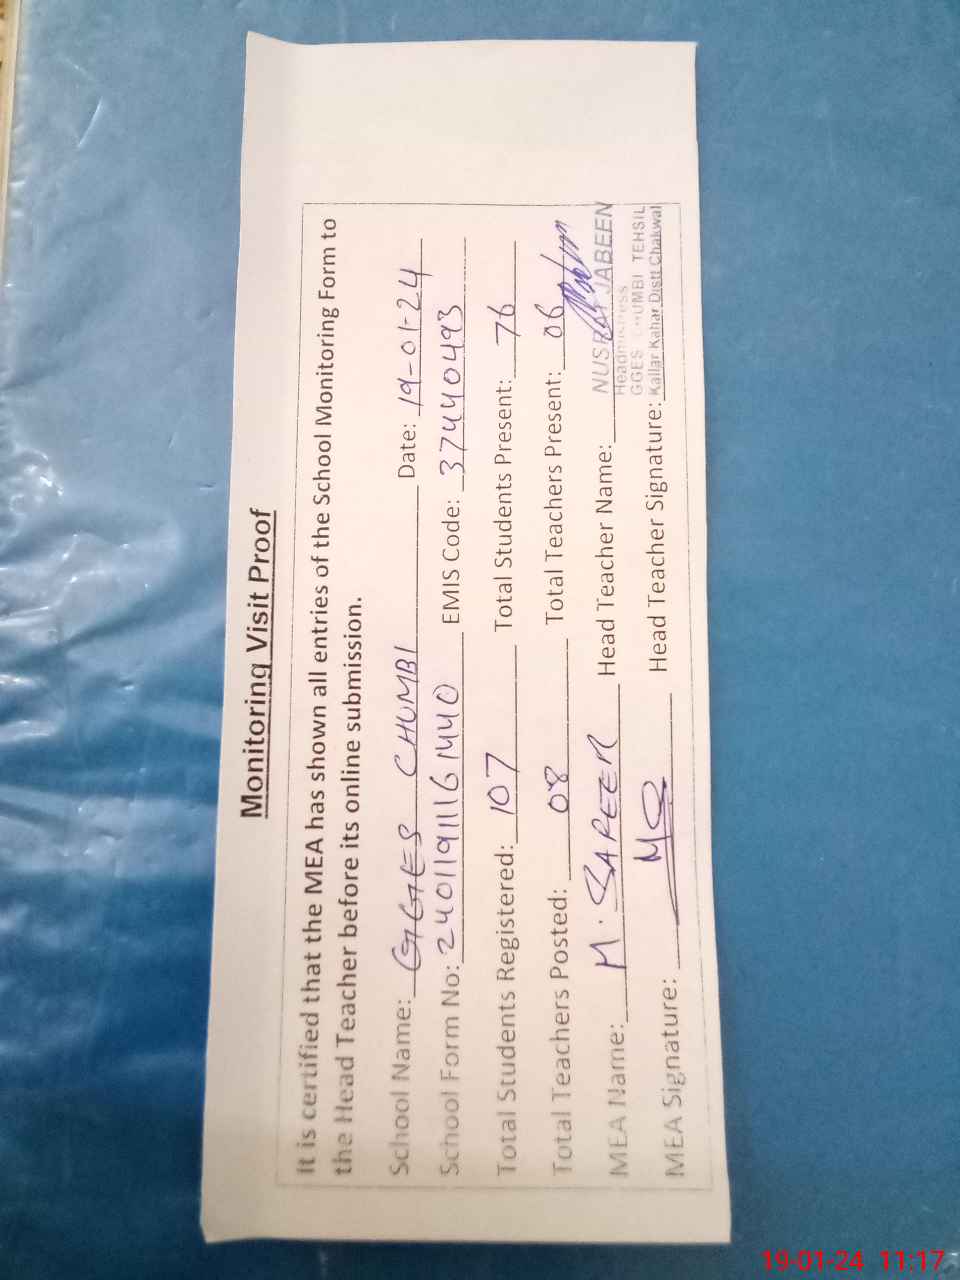 Monitoring Visit Proof
It is certified that the MEA has shown all entries of the School Monitoring Form to
the Head Teacher before its online submission.
School Name: GGES CHUMBI Date: 19-01-24
School Form No: 24011911161440 EMIS Code: 37440493
Total Students Registered: 107 Total Students Present: 76
Total Teachers Posted: 08 Total Teachers Present: 06
MEA Name: M. SAFEER Head Teacher Name: NUSRAT JABEEN
Headmistress
GGES CHUMBI TEHSIL
MEA Signature: Head Teacher Signature: Kallar Kahar Distt Chakwal
19-01-24 11:17